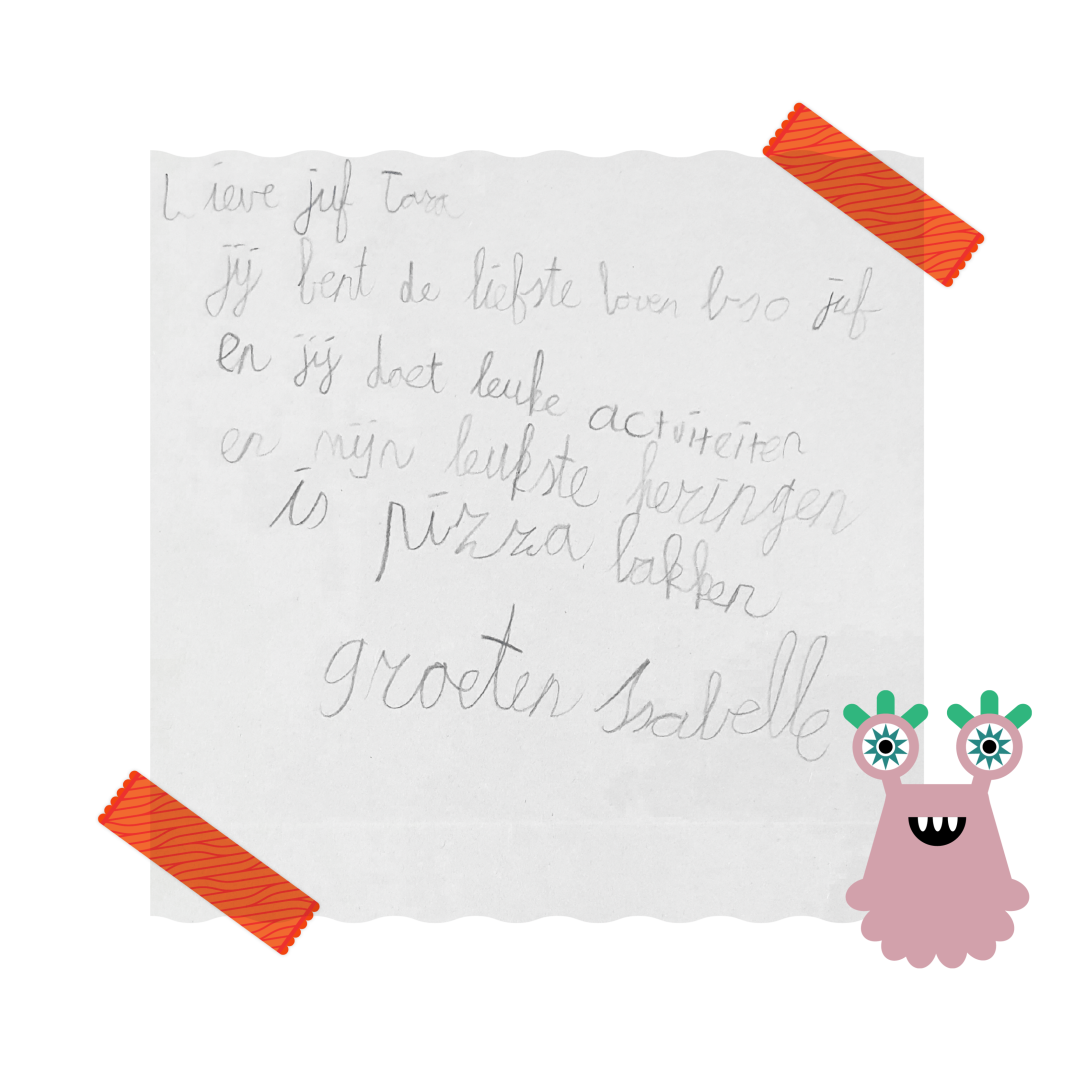 Lieve juf Tara
jij bent de liefste boven bso juf
en jij doet leuke actviteiten
en mijn leukste heringen
is pizza bakken
groeten Isabelle